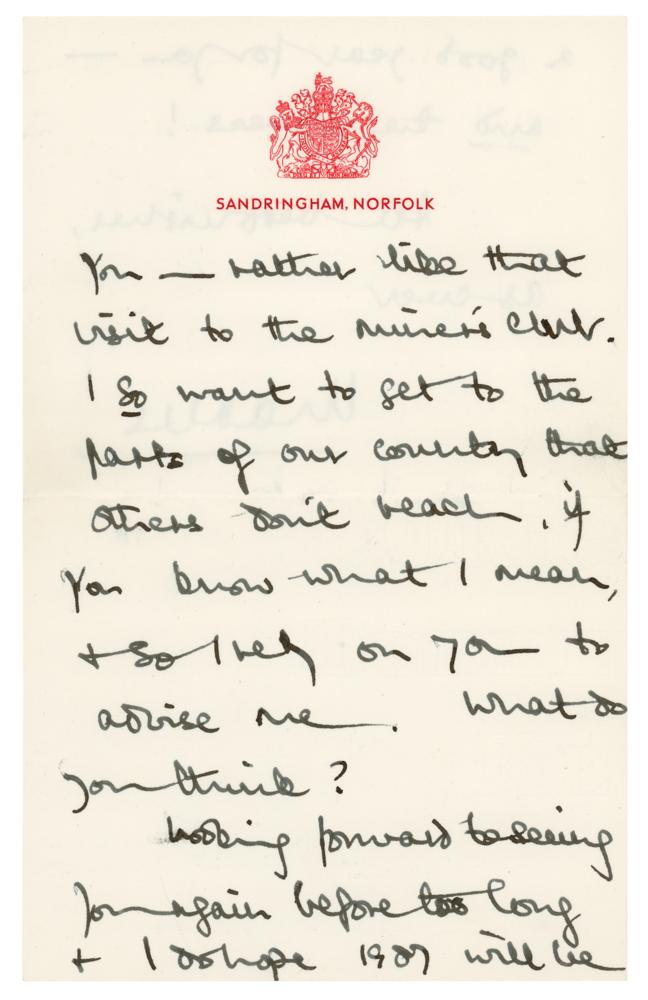 SANDRINGHAM, NORFOLK
You — rather like that
visit to the miner's club.
I so want to get to the
parts of our country that
others don't reach, if
you know what I mean,
+ so I rely on you to
advise me. What do
you think?
Looking forward to seeing
you again before too long
+ I do hope 1987 will be